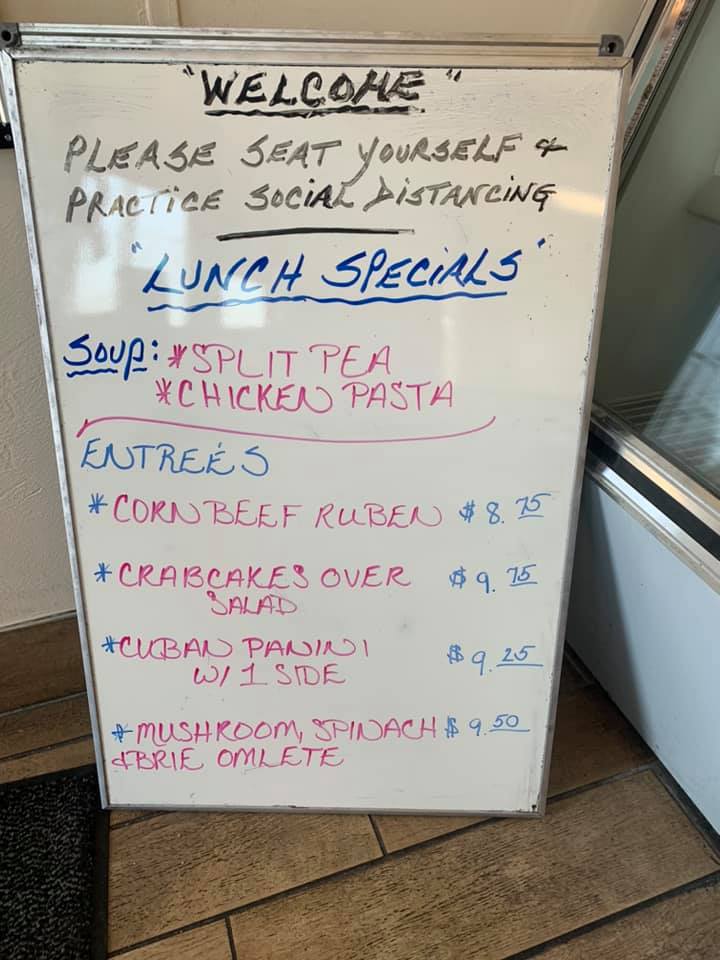 "WELCOME"
PLEASE SEAT YOURSELF &
PRACTICE SOCIAL DISTANCING
"LUNCH SPECIALS"
SOUP: *SPLIT PEA
*CHICKEN PASTA
ENTREÉS
*CORN BEEF RUBEN $8.75
*CRABCAKES OVER $9.75
SALAD
*CUBAN PANINI $9.25
W/ 1 SIDE
*MUSHROOM, SPINACH $9.50
&BRIE OMLETE